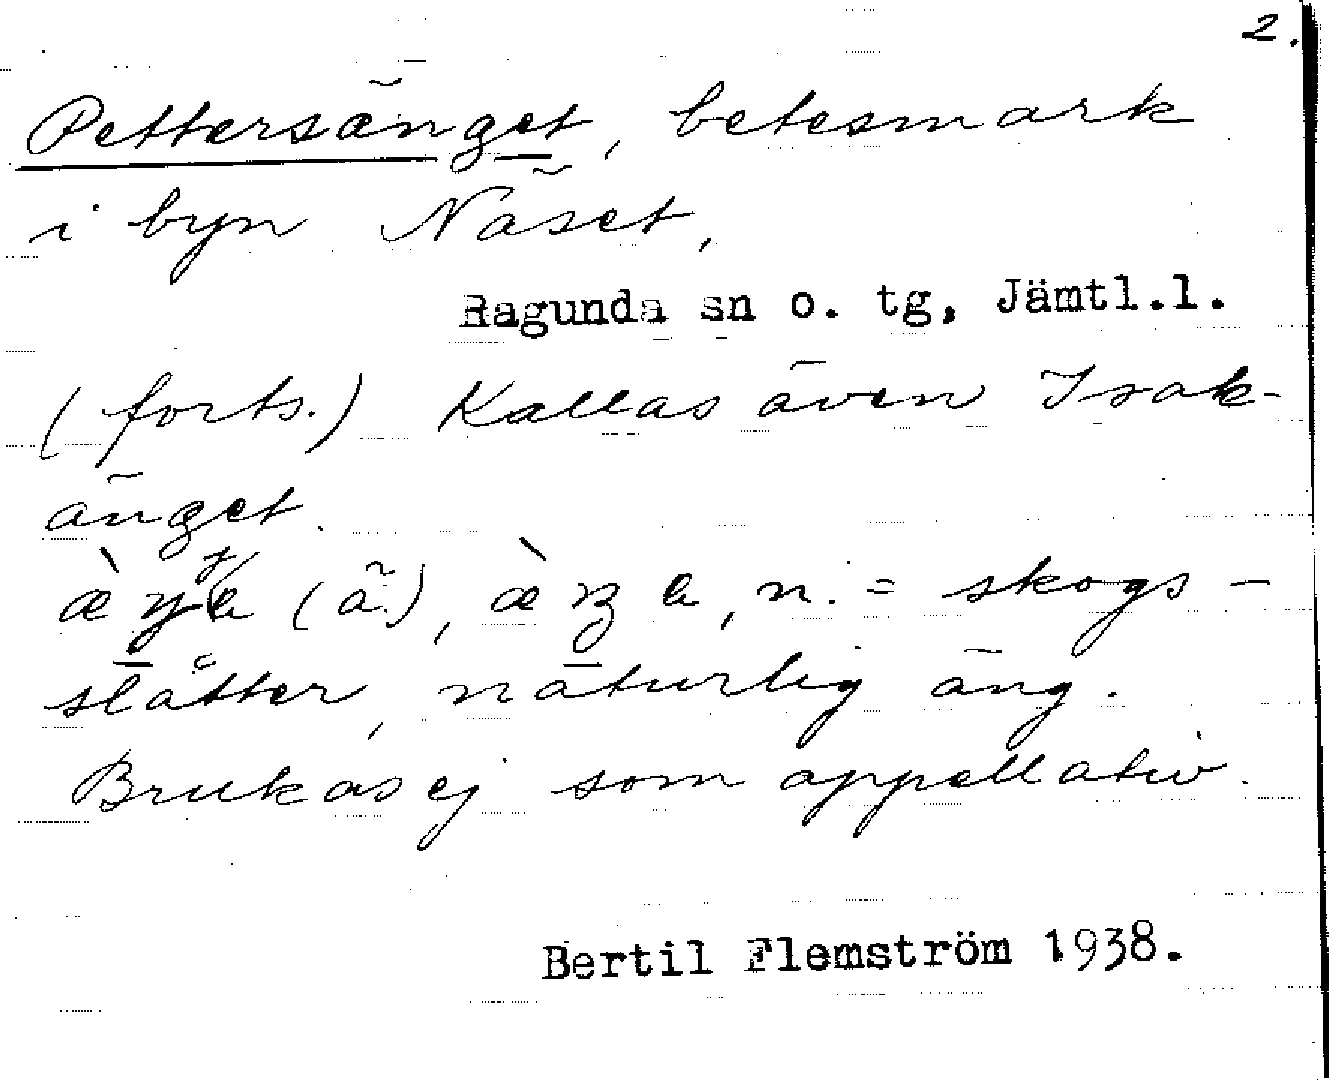 2.
Pettersänget, betesmark
i byn Näset,
Ragunda sn o. tg, Jämtl.l.
(forts.) Kallas även Isak-
änget.
(ä.), n. = skogs-
slåtter, naturlig äng.
Brukas ej som appellativ.
Bertil Flemström 1938.